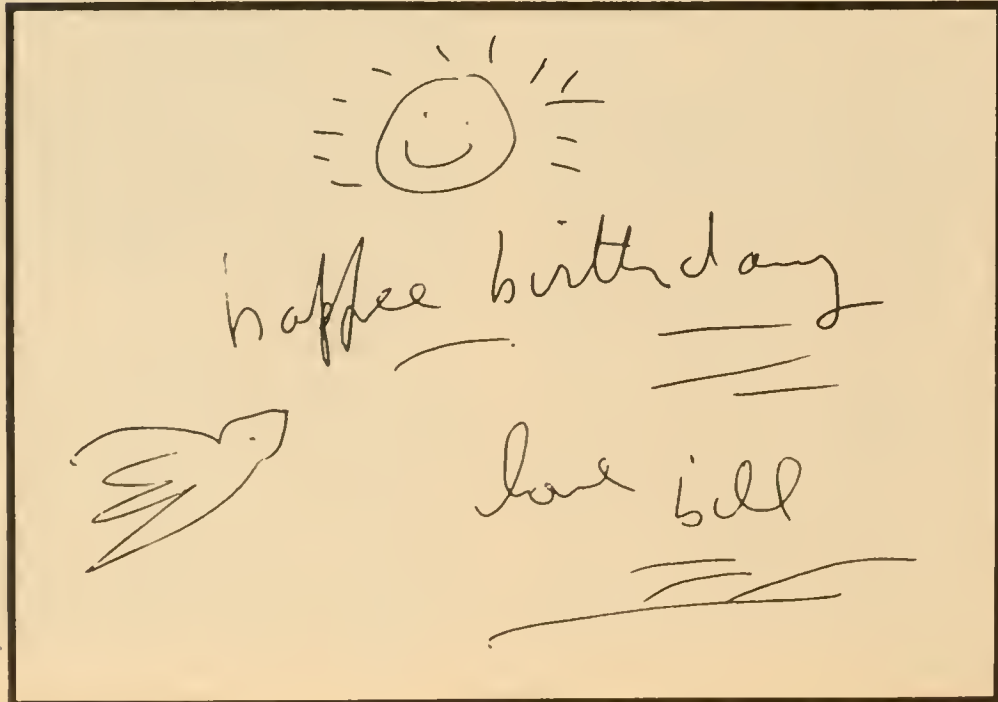 happee birthday
love bill